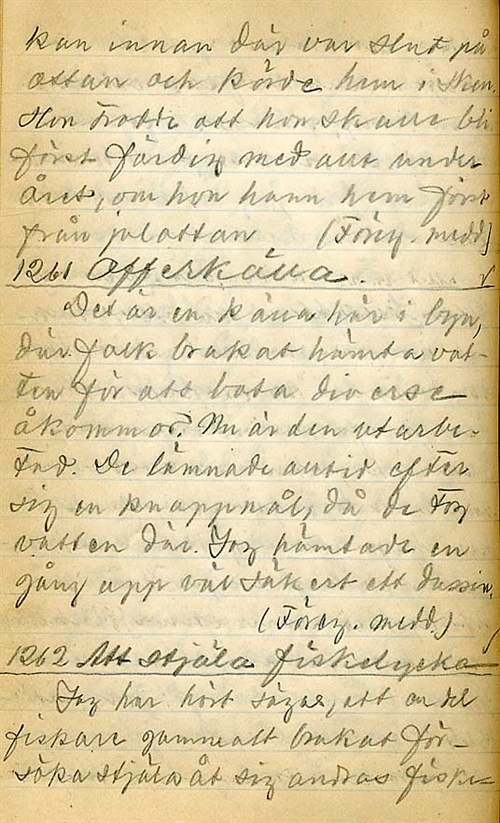 kan innan där var slut på
ottan och körde hem i sken.
Hon trodde att hon skulle bli
först färdig med allt under
året, om hon hann hem först
från julottan (Föreg. medd)
1261 Offerkälla.
Det är en källa här i byn,
där folk brukat hämta vat-
ten för att bota diverse
åkommor. Nu är den utarbe-
tad. De lämnade alltid efter
sig en knappnål, då de tog
vatten där. Jag hämtade en
gång upp väl säkert ett dussin.
(Föreg. medd.)
1262 Att stjäla fiskelycka
Jag har hört sägas, att en del
fiskare gammalt brukat för-
söka stjäla åt sig andras fiske-